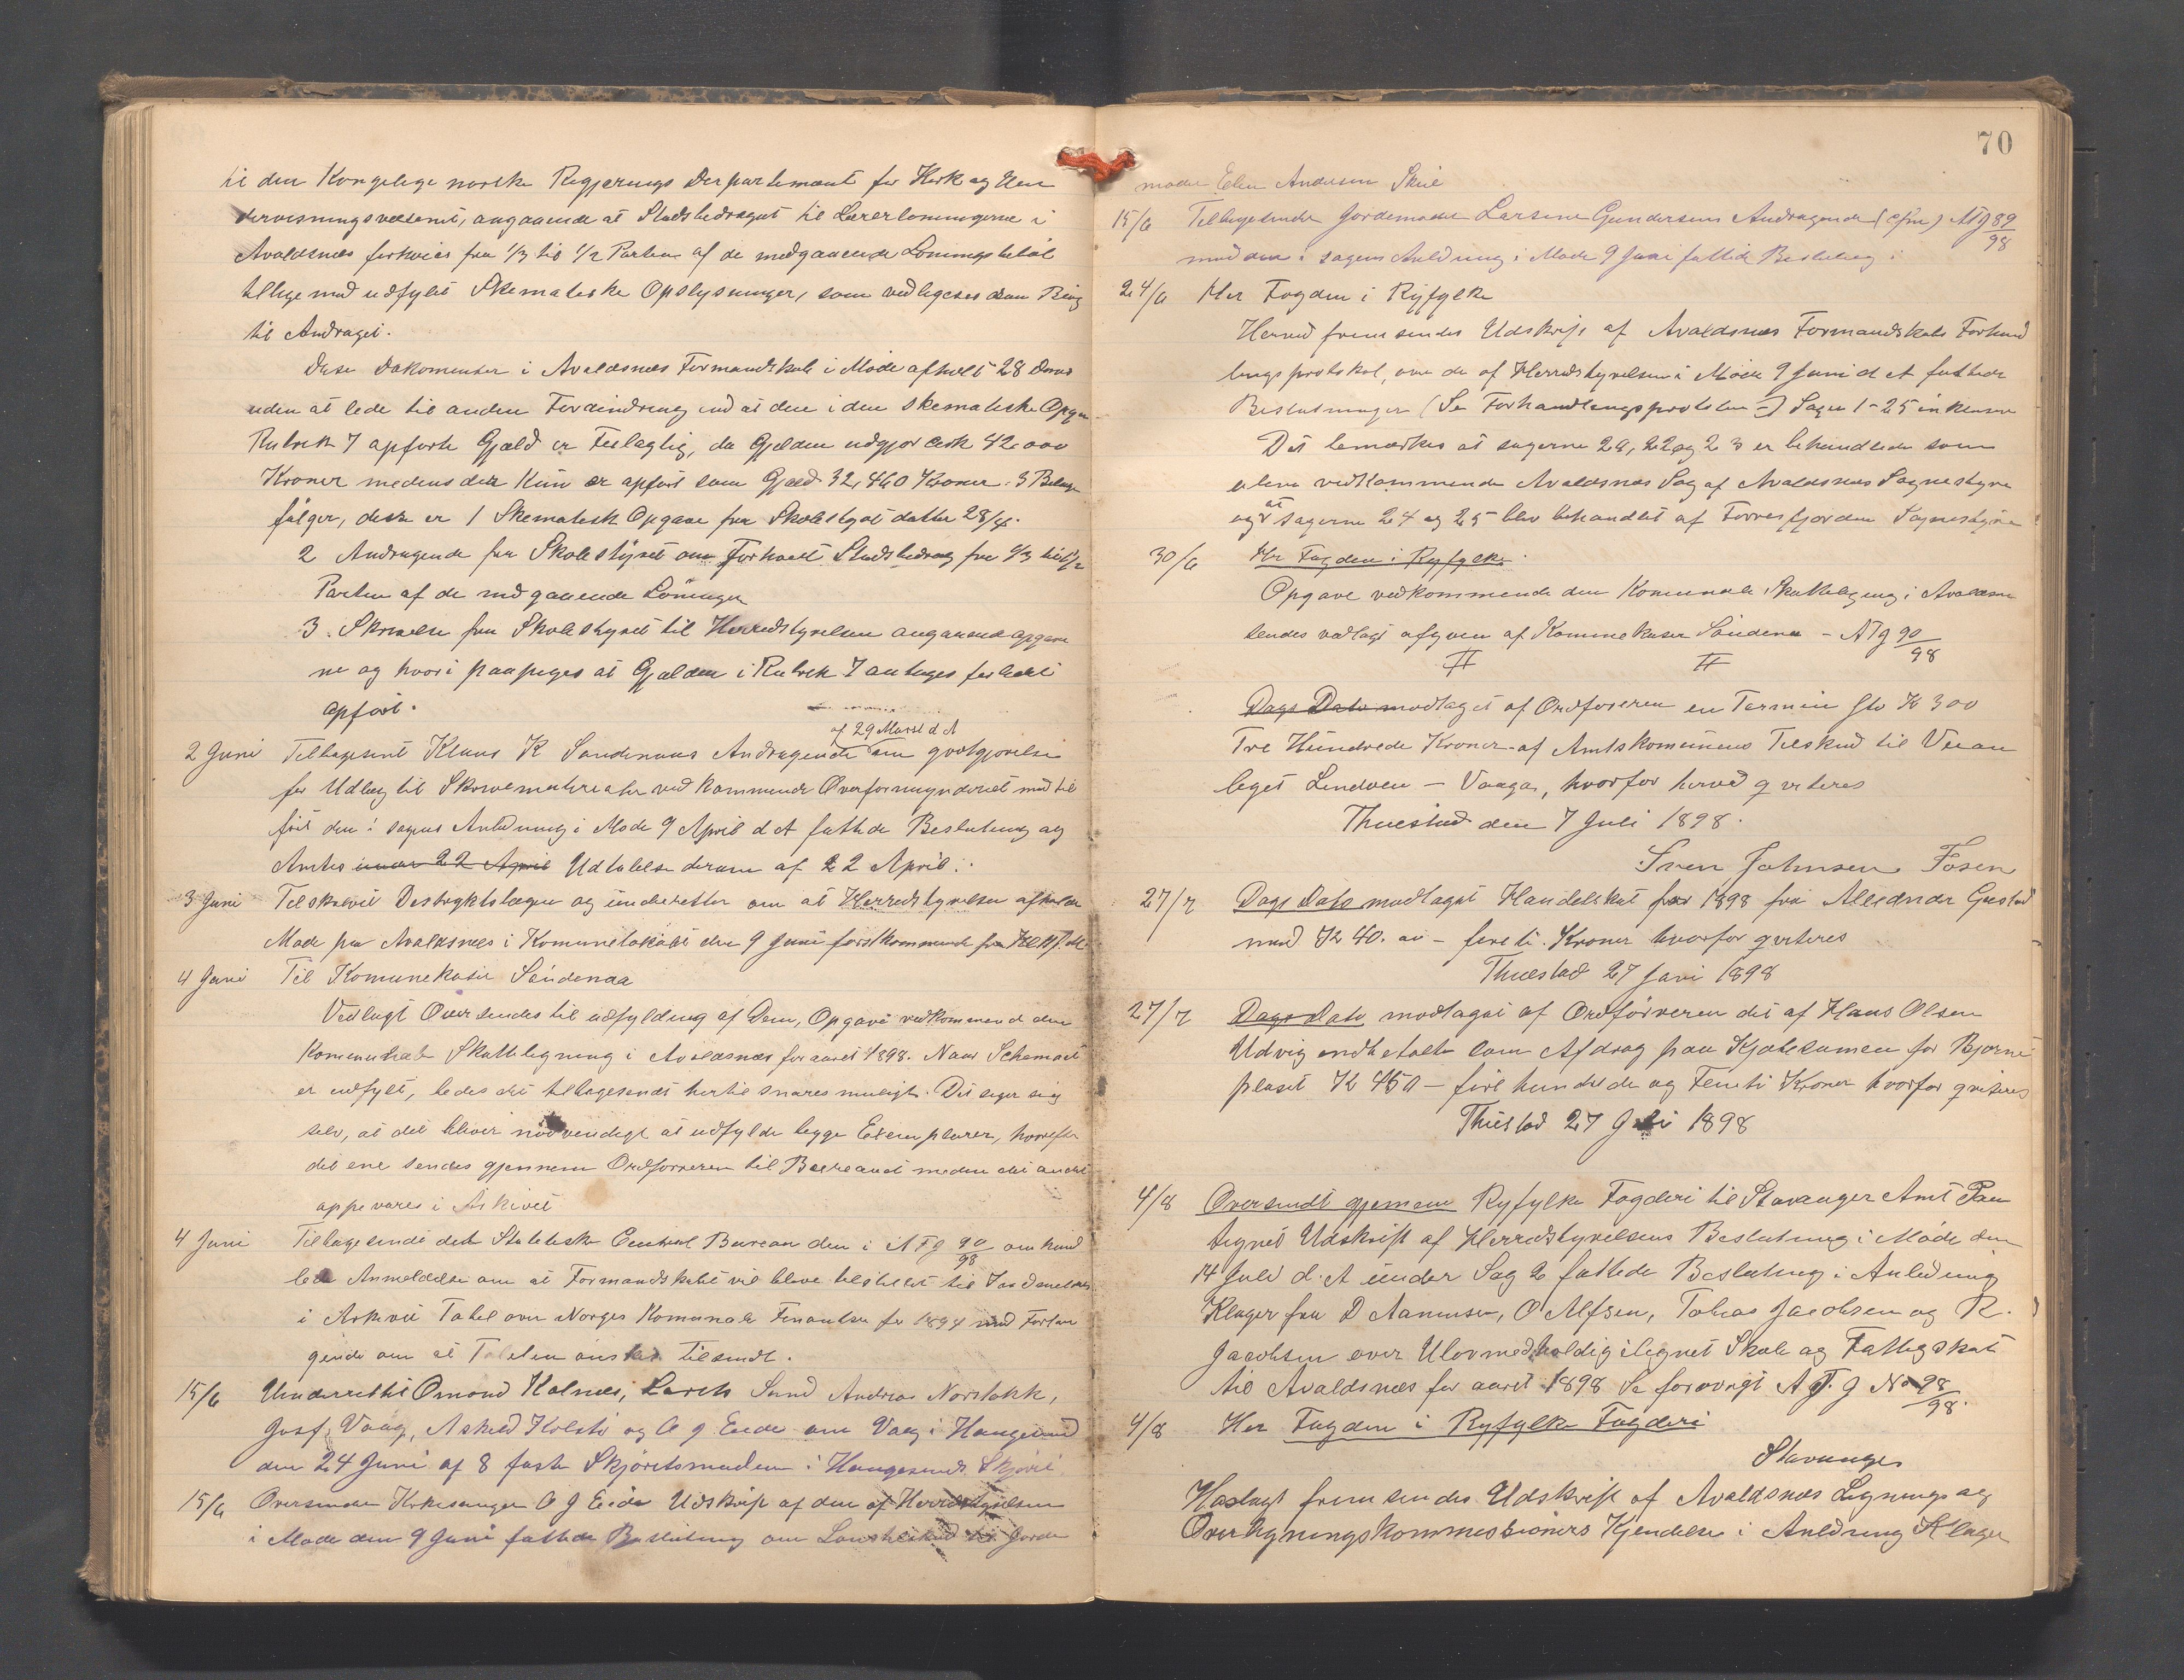 til den Kongelige norske Regjerings Departement for Kirk og Un
dervisningsvæsenet, angaaende at Stadsbedraget til Lærerlønningerne i
Avaldsnes forhøies fra 1/3 til 1/2 Parten af de medgaaende Lønningsbeløb
tillige med udfyldt Skematiske Oplysninger, som vedlegges som Bilag
til Andraget.
Disse Dokomenter i Avaldsnes Formandskab i Møde afholdt 28 
uden at lede til anden Forandring end at den i den skematiske Opga
Rubrik 7 opførte Gjæld er Feilagtig, da Gjælden udgjør cirk 42.000
Kroner medens der Kun er opført som Gjæld 32,460 Kroner. 3 Bilage
følger, disse er 1 Skematisk Opgave fra Skolestyret datter 28/4.
2 Andragende fra Skolestyret om Forhøiet Stadsbedrag fra 1/3 til 1/2
Parten af de medgaaende Lønninger
3. Skrivelse fra Skolestyret til Herredstyrelsen angaaende opgave
ne og hvori paapeges at Gjælden i Rubrik 7 antages feilaktig
opført.
af 29 Marts d A
2 Juni Tilbagesent Klaus K Sandenaas Andragende om godtgjørelse
for Udlæg til Skrivematerialer vedkommende Overformynderiet med til
føiet den i sagens Anledning i Møde 9 April d A fattede Beslutning og
Amtes innar 22 April Udtalelse derom af 22 April.
3 Juni Tilskrevet Destriktslægen og underettet om at Herredstyrelsen afholder
Møde paa Avaldsnes i Komunelokalet den 9 Juni førstkommende fra Kl
4 Juni Til Komunekaser Søndenaa
Vedlagt Oversendes til udfylding af Dem, Opgave vedkommend den
Kommunale Skatteligning i Avaldsnes for aaret 1898. Naar Schemaet
er udfylt, bedes det tilbagesendt hertil snarest muligt. Det siger sig
selv, at det bliver nødvendigt at udfylde begge Exemplarer, hvorefter
det ene sendes gjennem Ordføreren til Bureauet meden det andet
oppevares i Arkivet
4 Juni Tilbagesendt det Statistiske Central Bureau den i A F J 90/98 omhand
lede Anmeldelse om at Formandskabet vil blive tilstillet til Indsmeldes
i Arkivet Tabel over Norges Komunale Finantser for 1894 med Forlan
gende om at Tabelen ønskes Tilsendt.
15/6 Underrettet Omond Kalnes, Lars Sund Andreas Norstokk,
Josf. Vaag, Askild Kolstø og O J Eide om Valg i Haugesund
den 24 Juni af 8 faste Skjøretsmænden i Haugesunds Skjøret
15/6 Oversende Kirkesanger O J Eide Udskrift af den af Herredstyrelsen
i Møde den 9 Juni fattede Beslutning om Lønstilskud til Jorde
70
moder Elen Andersen Skeie
15/6 Tilbagesendt Jordemoder Larsine Gundersens Andragende (cfr) AFJ 89/98
med den i sagens Anledning i Møde 9 Juni fattede Beslutning
24/6 Her Fogden i Ryfylke
Herved fremsendes Udskrift af Avaldsnes Formandskabs Forhand
lings protokol, over de af Herredstyrelsen i Møde 9 Juni d A fattede
Beslutninger (Se Forhandlingsprotokolen) Sager 1-25 inklusive
Det bemærkes at sagerne 20, 22 og 23 er behandlede som
alene vedkommende Avaldsnes Sog af Avaldsnes Sognestyre
og at sagerne 24 og 25 blev behandlet af Førresfjorden Sognestyre
30/6 Hr Fogden i Ryfylke
Opgave vedkommende den Komunale Skatteligning i Avaldsnes
sendes vedlagt afgiven af Kommekaser Søndena – AFJ 90/98
Dags Dato modtaget af Ordføreren en Termin stor K 300
Tre Hundrede Kroner af Amtskomunens Tilskud til Veian
leget Lindøen – Vaaga, hvorfor herved qviteres
Thuestad den 7 Juli 1898.
Sven Johnsen Fosen
27/7 Dags Dato modtaget Handelskat for 1898 fra 
med K 40. ai – firti Kroner hvorfor qviteres
Thuestad 27 Juni 1898
27/7 Dags Dato modtaget af Ordføreren det af Hans Olsen
Udvig indbetalte som Afdrag paa Kjøbesumen for Bjørne
plaset K 450 – fire hundrede og Femti Kroner hvorfor qviteres
Thuestad 27 Juli 1898
4/8 Oversendt gjennem Ryfylke Fogderi til Stavanger Amt Paa
tegnet Udskrift af Herredstyrelsens Beslutning i Møde den
14 Juli d. A under Sag 2 fattede Beslutning i Anledning
Klager fra D Aanensen, O Alfsen, Tobias Jacobsen og R.
Jacobsen over Ulovmedholdig ilignet Skole og Fattigskat
til Avaldsnes for aaret 1898 Se forøvrigt A F. J No 98/98.
4/8 Her Fogden i Ryfylke Fogderi
Stavanger
Hoslagt fremsendes Udskrift af Avaldsnes Lignings og
Overligningskommissioners Kjendelse i Anledning Klager